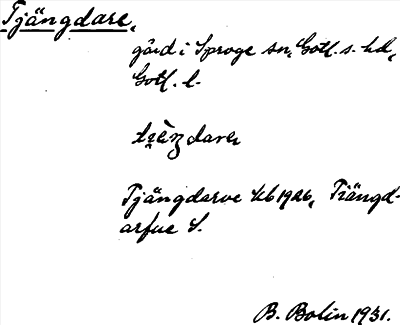 Tjängdare,
gård i Sproge sn, Gotl. s. hd,
Gotl. l.
darɐ
Tjängdarve Kb 1926, Tiängd-
arfue S.
B. Bolin 1931.